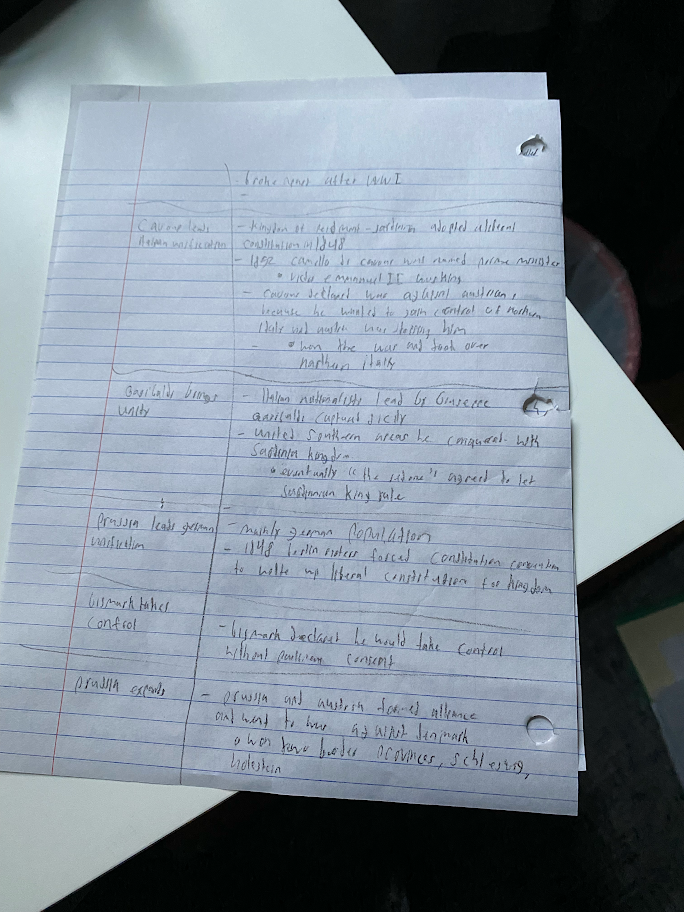 - broke apart after WW I
-
Cavour leads
Italian unification
- Kingdom of Piedmont-Sardinia adopted a liberal
constitution in 1848
- 1852 Camillo di Cavour was named prime minister
• Victor Emmanuel II was king
- Cavour declared war against Austrians,
because he wanted to gain control of northern
Italy and Austria was stopping him
- • won the war and took over
northern Italy
Garibaldi brings
unity
- Italian nationalists lead by Giuseppe
Garibaldi captured Sicily
- united Southern areas he conquered with
Sardinia kingdom
• eventually "the red one" agreed to let
Sardinian king rule
-
Prussia leads german
unification
- mainly german population
- 1848 Berlin rioters forced constitution convention
to write up liberal constitution for kingdom
bismark takes
control
- bismark declared he would take control
without parliment consent
prussia expands
- prussia and austria formed alleance
and went to war against denmark
• won two border provinces, schleswig,
holstein